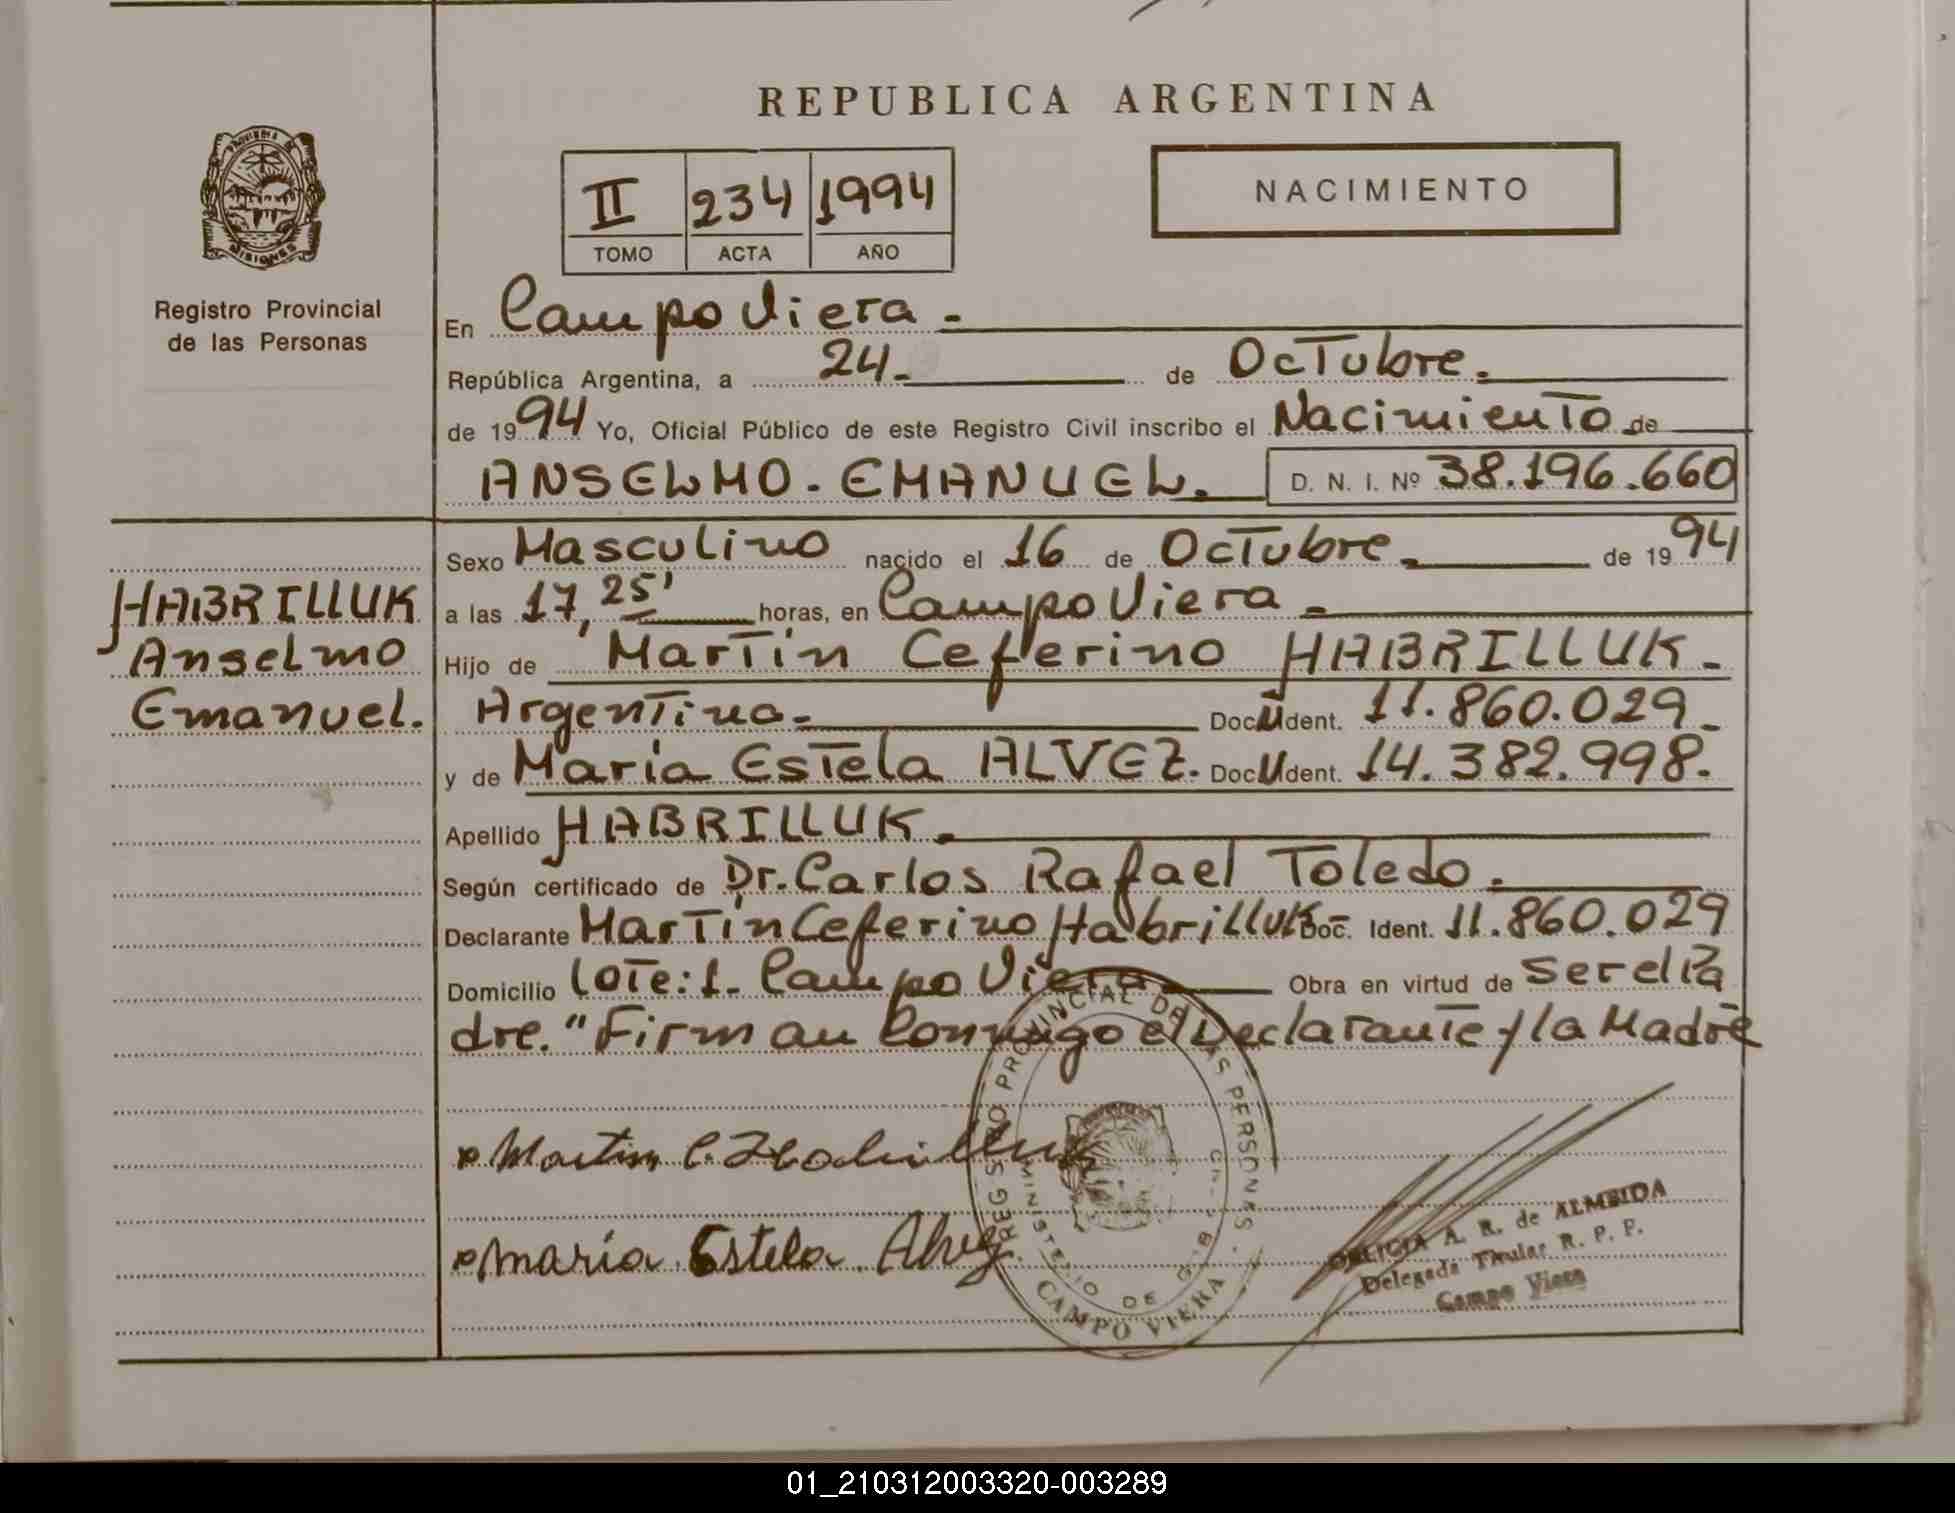 REPUBLICA ARGENTINA
PROVINCIA DE MISIONES
Registro Provincial
de las Personas
II 234 1994
TOMO ACTA AÑO
NACIMIENTO
En Campo Viera.-
República Argentina, a 24.- de Octubre.
de 1994 Yo, Oficial Público de este Registro Civil inscribo el Nacimiento de
ANSELMO - EMANUEL. D. N. I. Nº 38.196.660
Sexo Masculino nacido el 16 de Octubre. de 1994
HABRILLUK
Anselmo
Emanuel.
a las 17,25' horas, en Campo Viera.-
Hijo de Martín Ceferino HABRILLUK.-
Argentino.- Doc. U Ident. 11.860.029.-
y de María Estela ALVEZ. Doc. U Ident. 14.382.998.
Apellido HABRILLUK.-
Según certificado de Dr. Carlos Rafael Toledo.
Declarante Martín Ceferino Habrilluk Doc. Ident. 11.860.029
Domicilio Lote: 1- Campo Viera Obra en virtud de ser el Pa
dre. "Firman Conmigo el Declarante y la Madre
Martin C. Habrilluk
Maria Estela Alvez
REGISTRO PROVINCIAL DE LAS PERSONAS
MINISTERIO DE GOB
CAMPO VIERA
A. R. de ALMEIDA
Delegada Titular R. P. P.
Campo Viera
01_210312003320-003289